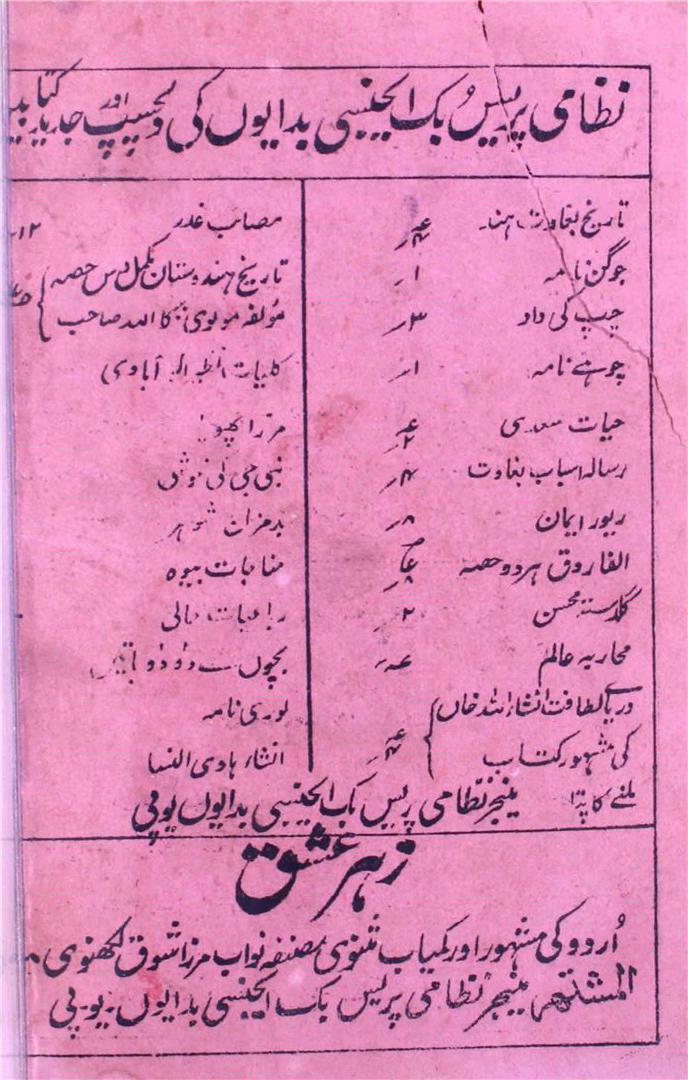 نظامی پریس بک ایجنسی بدایوں کی دلچسپ اور جدید کتابیں
تاریخ بغاوت ہند
جوگن نامہ ۱ر
چپ کی داد ۳ر
چوہے نامہ ۱ر
حیات سعدی
رسالہ اسباب بغاوت ۴ر
زیور ایمان ۸ر
الفاروق ہر دو حصہ
گلدستہ محسن ۲ر
محاربہ عالم
دریائے لطافت انشاء اللہ خاں
کی مشہور کتاب
مصائب غدر ۱۲
تاریخ ہندوستان مکمل دس حصہ
مؤلفہ مولوی ذکاء اللہ صاحب
کلیات الٰہ آبادی
مرزا پھویا
نبی جی کی
بدمزاج شوہر
مناجات بیوہ
رباعیات حالی
بچوں سے دو دو باتیں
لوری نامہ
انشاء ہادی النسا
ملنے کا پتا منیجر نظامی پریس بک ایجنسی بدایوں یوپی
زہر عشق
اُردو کی مشہور اور کمیاب مثنوی مصنفہ نواب مرزا شوق لکھنوی
المشتہر منیجر نظامی پریس بک ایجنسی بدایوں۔ یو۔ پی